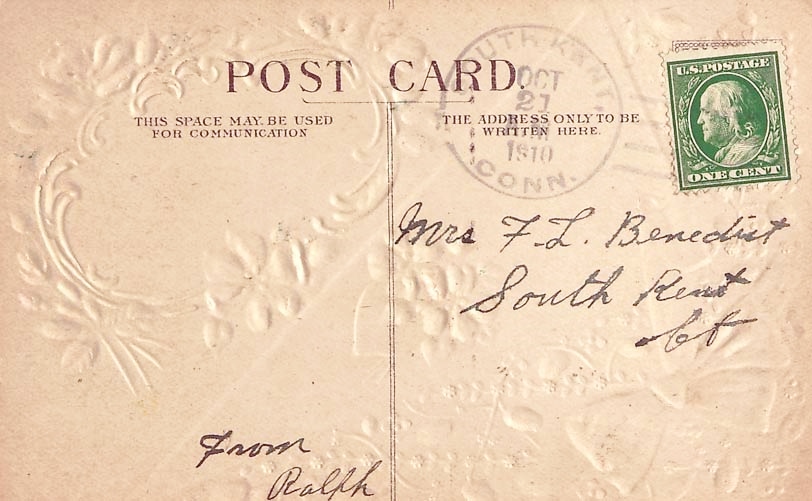 POST CARD.
THIS SPACE MAY BE USED
FOR COMMUNICATION
THE ADDRESS ONLY TO BE
WRITTEN HERE.
SOUTH KENT,
OCT
27
1910
CONN.
U.S. POSTAGE
ONE CENT
Mrs F. L. Benedict
South Kent
Ct
From
Ralph